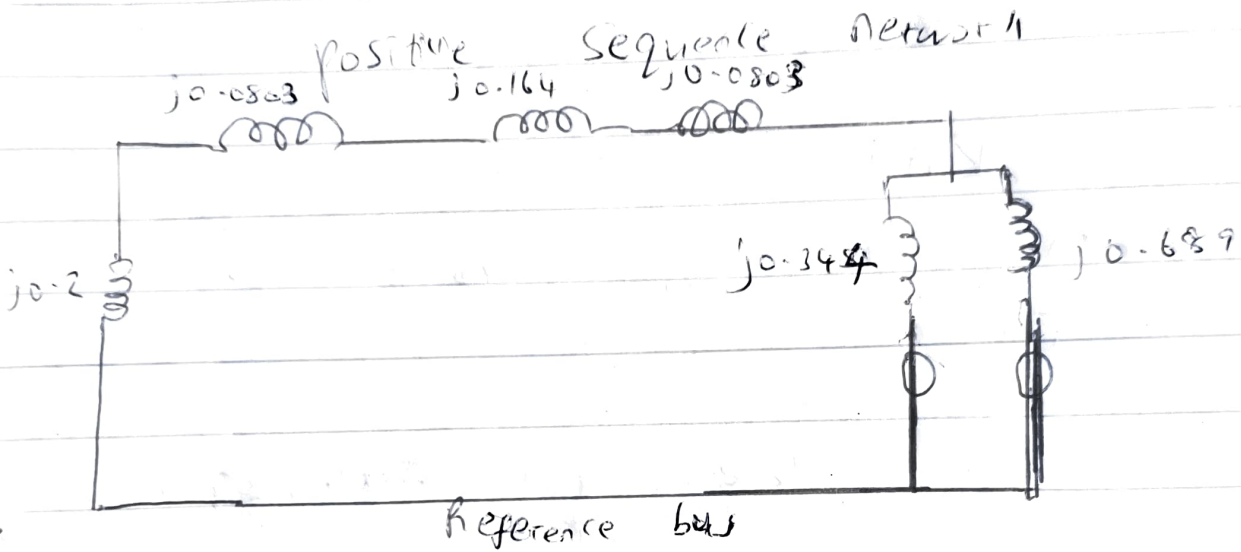 positive sequence network
j0.0803 j0.164 j0.0803
j0.2 j0.344 j0.689
Reference bus